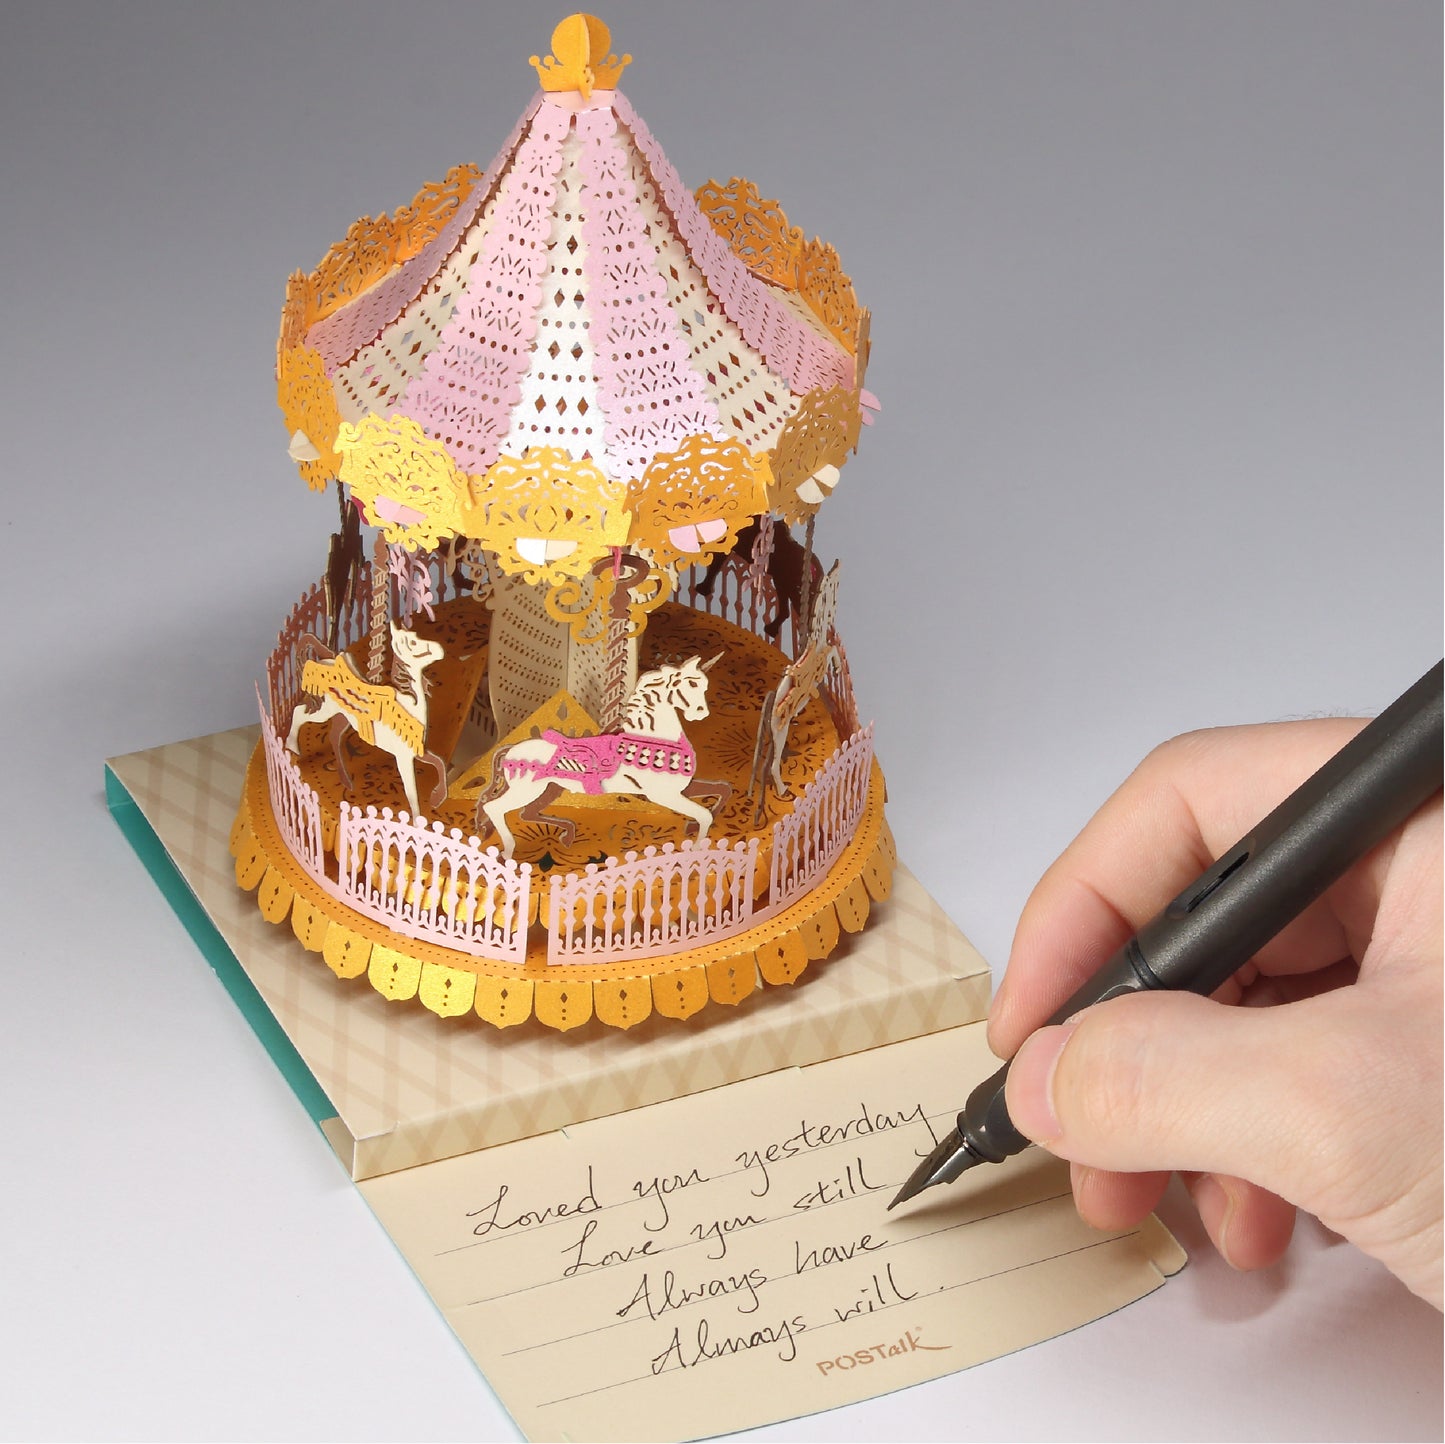 Loved you yesterday
Love you still
Always have
Always will.
POSTalk